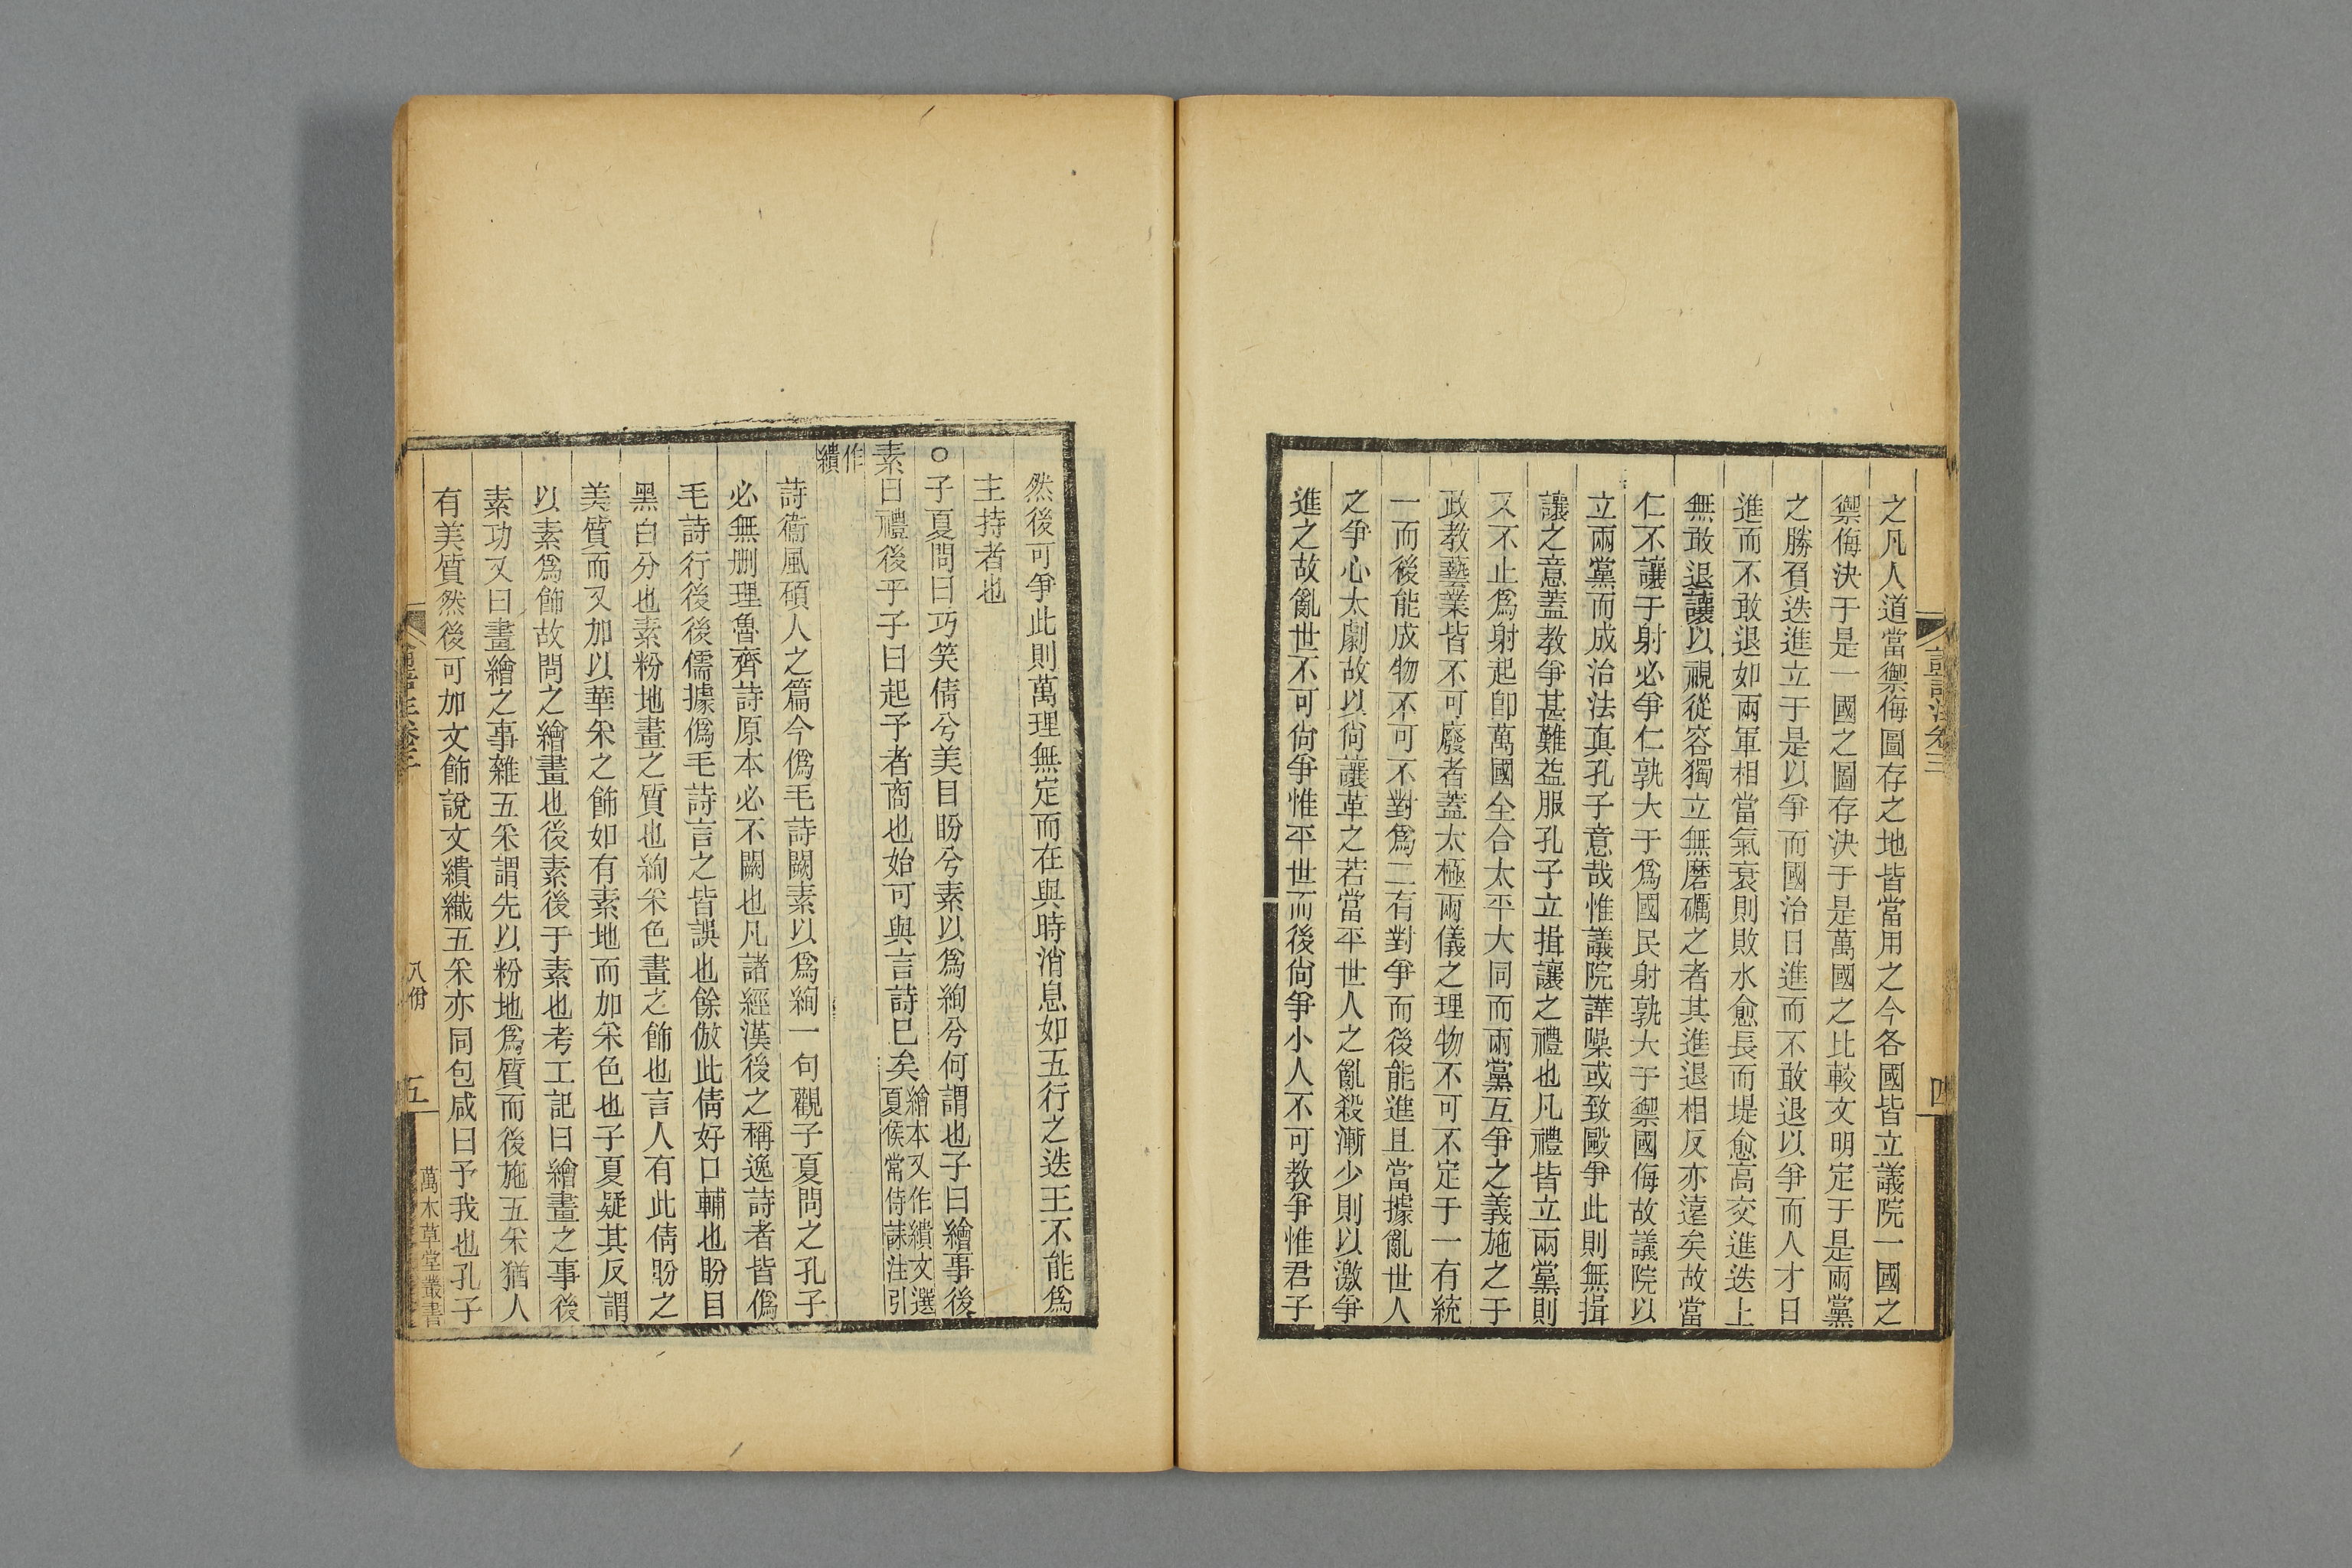 之凡人道當禦侮圖存之地皆當用之今各國皆立議院一國之
禦侮決于是一國之圖存決于是萬國之比較文明定于是兩黨
之勝負迭進立于是以爭而國治日進而不敢退以爭而人才日
進而不敢退如兩軍相當氣衰則敗水愈長而堤愈高交進迭上
無敢退讓以視從容獨立無磨礪之者其進退相反亦遠矣故當
仁不讓于射必爭仁孰大于爲國民射孰大于禦國侮故議院以
立兩黨而成治法真孔子意哉惟議院譁噪或致毆爭此則無揖
讓之意蓋教爭甚難益服孔子立揖讓之禮也凡禮皆立兩黨則
又不止爲射起卽萬國全合太平大同而兩黨互爭之義施之于
政教藝業皆不可廢者蓋太極兩儀之理物不可不定于一有統
一而後能成物不可不對爲二有對爭而後能進且當據亂世人
之爭心太劇故以尙讓革之若當平世人之亂殺漸少則以激爭
進之故亂世不可尙爭惟平世而後尙爭小人不可教爭惟君子
論語注卷三
四
然後可爭此則萬理無定而在與時消息如五行之迭王不能爲
主持者也
○子夏問曰巧笑倩兮美目盼兮素以爲絢兮何謂也子曰繪事後
素曰禮後乎子曰起予者商也始可與言詩已矣繪本又作繢文選夏侯常侍誄注引
作繢
詩衞風碩人之篇今僞毛詩闕素以爲絢一句觀子夏問之孔子
必無刪理魯齊詩原本必不闕也凡諸經漢後之稱逸詩者皆僞
毛詩行後後儒據僞毛詩言之皆誤也餘倣此倩好口輔也盼目
黑白分也素粉地畫之質也絢采色畫之飾也言人有此倩盼之
美質而又加以華采之飾如有素地而加采色也子夏疑其反謂
以素爲飾故問之繪畫也後素後于素也考工記曰繪畫之事後
素功又曰畫繪之事雜五采謂先以粉地爲質而後施五采猶人
有美質然後可加文飾說文繢織五采亦同包咸曰予我也孔子
論語注卷三
八佾
五
萬木草堂叢書